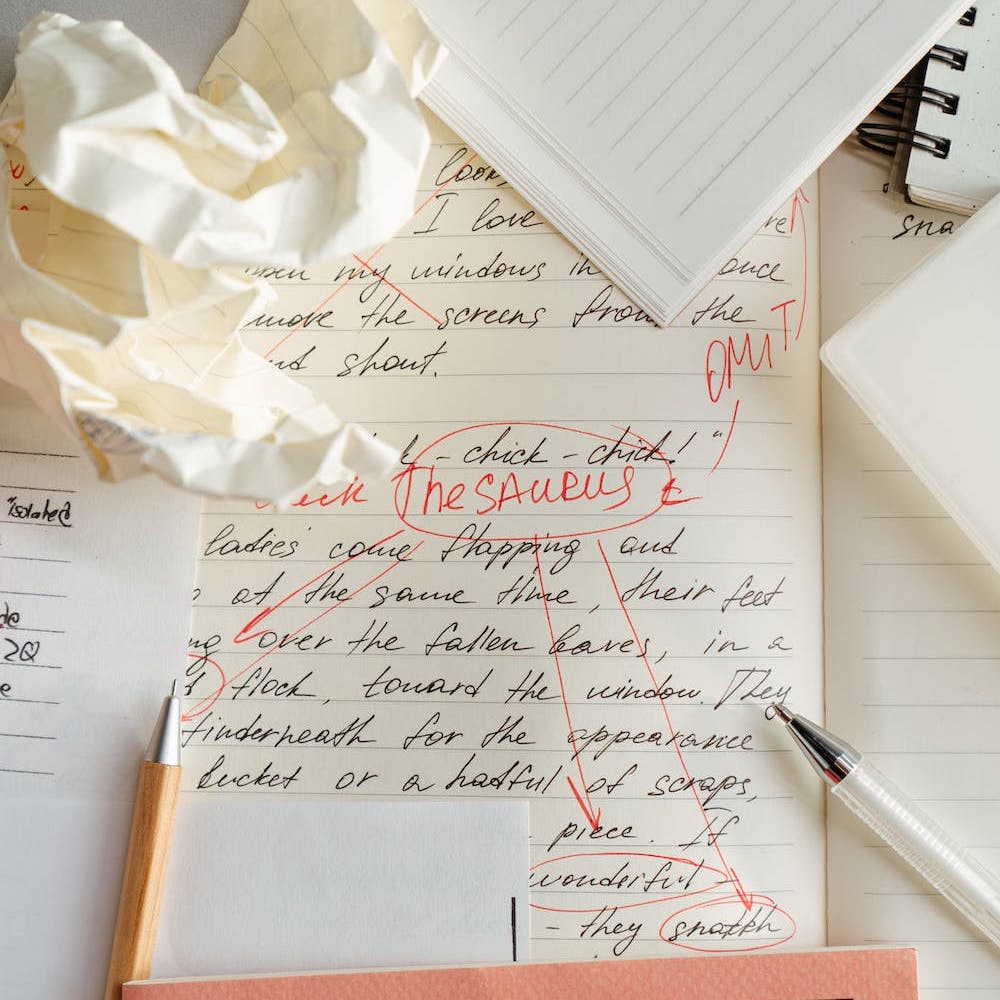 look
I love
my windows in
move the screens from the
shout.
OMIT
- chick - chick!"
Thesaurus
ladies come flapping and
at the same time, their feet
over the fallen leaves, in a
flock, toward the window. They
underneath for the appearance
bucket or a hatful of scraps,
piece. If
wonderful -
- they snatch
sna
"isolate@
de
2Q
e